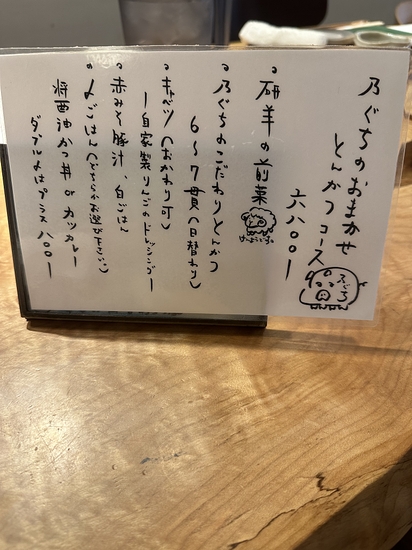 乃ぐちのおまかせ
とんかつコース
六八〇〇ー
。研羊の前菜
。乃ぐちのこだわりとんかつ
6〜7貫(日替わり)
。キャベツ(おかわり可)
ー自家製りんごのドレッシングー
。赤みそ豚汁、白ごはん
。〆ごはん(どちらかお選び下さい。)
将西油かつ丼 or カツカレー
ダブル〆はプラス八〇〇ー
乃ぐち